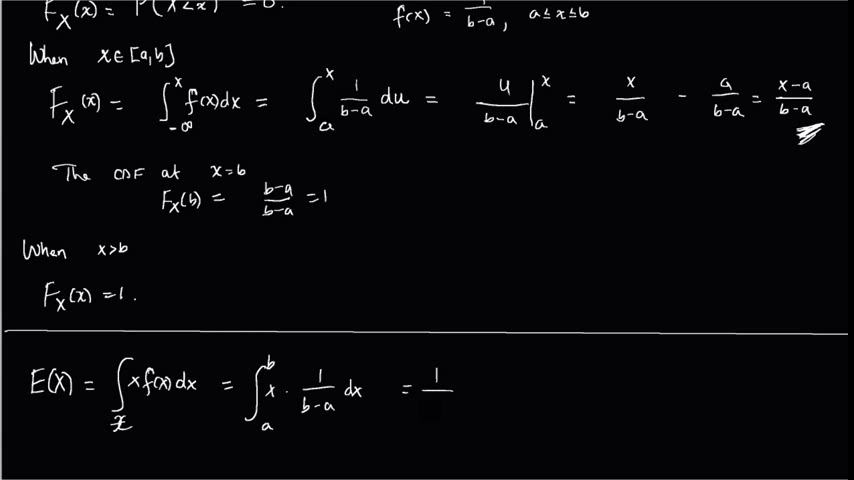 F_X(x) = P(X<x) = 0.
f(x) = 1/(b-a), a≤x≤b
When x∈[a,b]
F_X(x) = ∫_{-∞}^{x} f(x)dx = ∫_{a}^{x} 1/(b-a) du = u/(b-a) |_{a}^{x} = x/(b-a) - a/(b-a) = (x-a)/(b-a)
The CDF at x=b
F_X(b) = (b-a)/(b-a) = 1
When x>b
F_X(x) = 1.
E(X) = ∫_{x} x f(x) dx = ∫_{a}^{b} x · 1/(b-a) dx = 1/